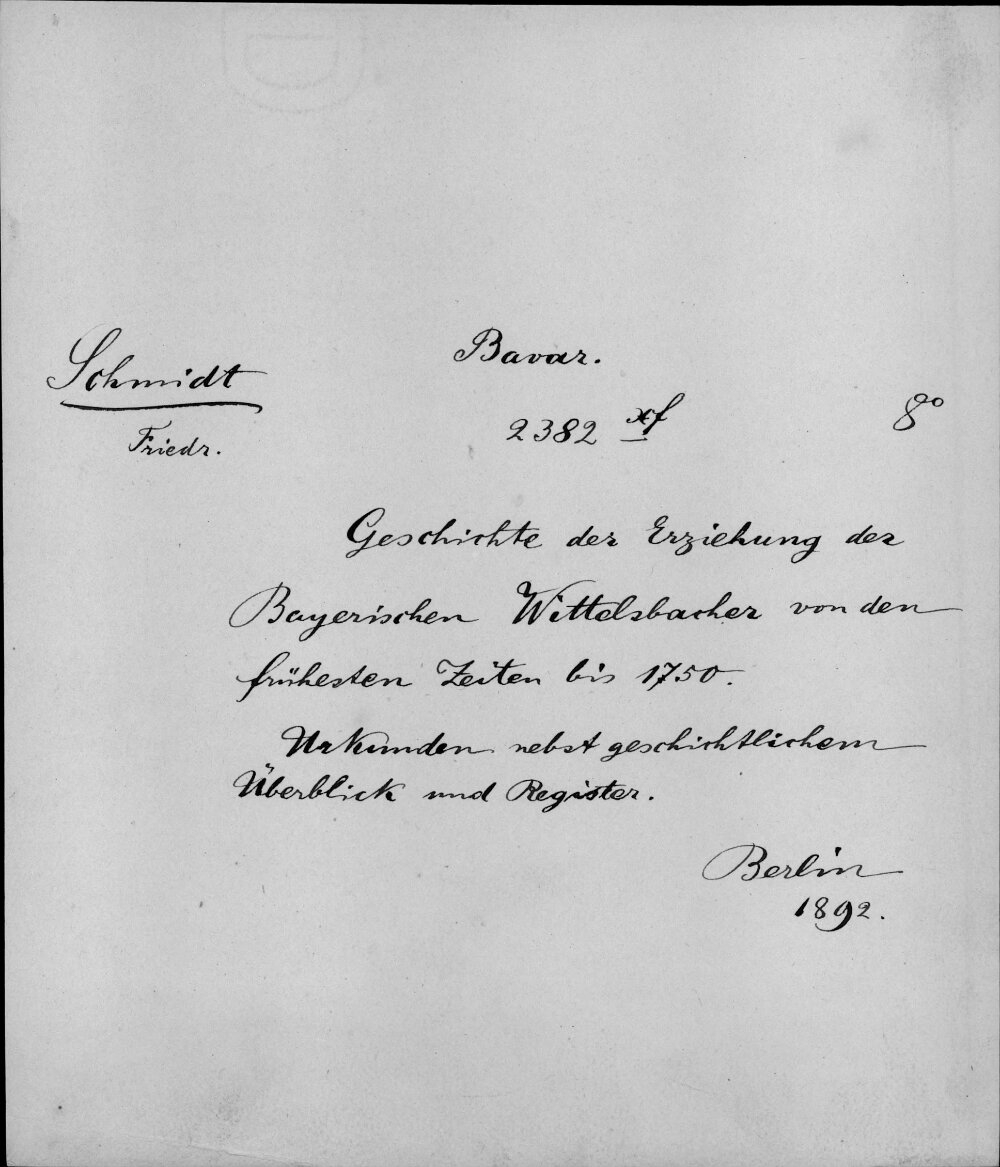 Schmidt
Friedr.
Bavar.
2382 xf
8°
Geschichte der Erziehung der
Bayerischen Wittelsbacher von den
frühesten Zeiten bis 1750.
Urkunden nebst geschichtlichem
Überblick und Register.
Berlin
1892.